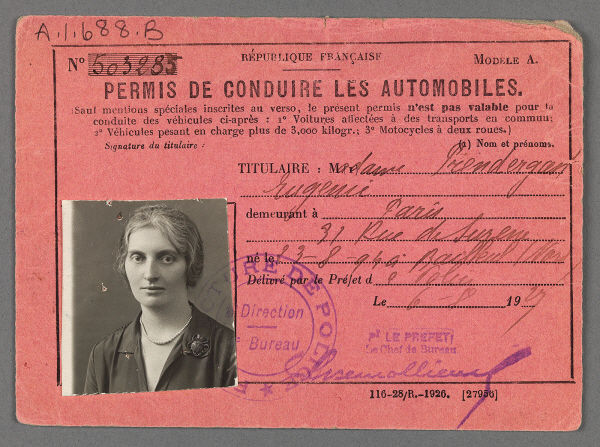 A.1.688.B
Nº 503285
RÉPUBLIQUE FRANÇAISE
MODÈLE A.
PERMIS DE CONDUIRE LES AUTOMOBILES.
(Sauf mentions spéciales inscrites au verso, le présent permis n'est pas valable pour la
conduite des véhicules ci-après : 1º Voitures affectées à des transports en commun;
2º Véhicules pesant en charge plus de 3,000 kilogr.; 3º Motocycles à deux roues.)
Signature du titulaire :
(1) Nom et prénoms.
TITULAIRE : Madame Prendergast
Eugenie
demeurant à Paris
31 Rue de
né le 23-8-
Délivré par le Préfet d
Le 6-8 1927
PRÉFECTURE DE POLICE
Direction
Bureau
Pr LE PREFET
Le Chef de Bureau
116-28/R.-1926. [27956]